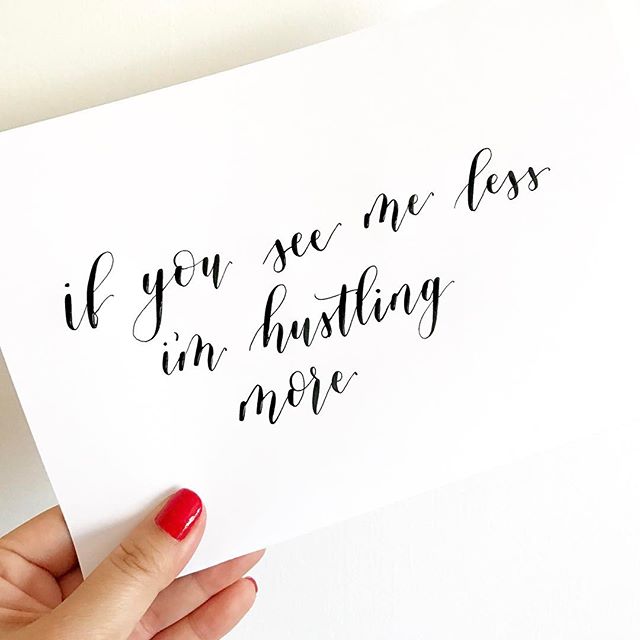 if you see me less
i'm hustling
more